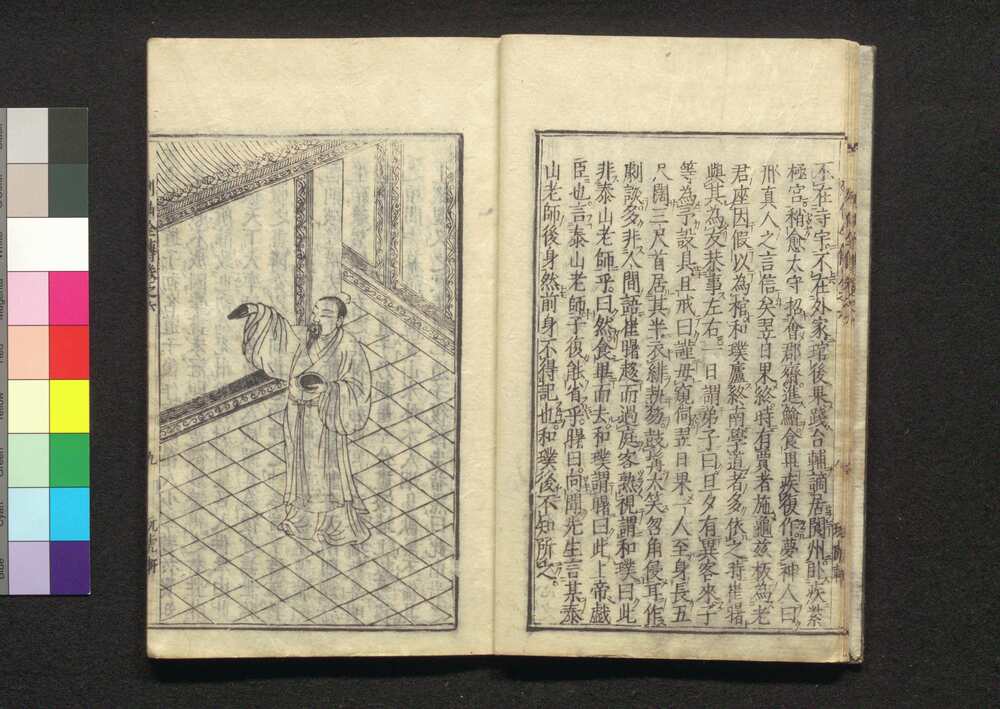 不在寺宇不在外家琯後果踐台輔謫居閬州臥疾紫
極宮稍愈太守招會郡齋進鱠食畢疾復作夢神人曰
邢真人之言信矣翌日果終時有賈者施龜茲板為老
君座因假以為棺和璞廬終南學道者多依之時崔曙
與其為友某事左右一日謂弟子曰旦夕有異客來子
等為予設具且戒曰謹毋窺伺翌日果一人至身長五
尺闊三尺首居其半衣緋執笏鼓髯大笑吻角侵耳作
劇談多非人間語崔曙趍而過庭客熟視謂和璞曰此
非泰山老師乎曰然食畢而去和璞謂曙曰此上帝戲
臣也言泰山老師子復能省乎曙曰向聞先生言某泰
山老師後身然前身不得記也和璞後不知所之
列仙全傳卷之六
九
玩虎軒